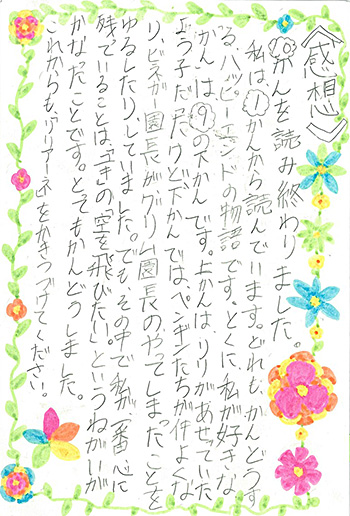 《感想》
⑨かんを読み終わりました。
私は①かんから読んでいます。どれも、かんどうす
る、ハッピーエンドの物語です。とくに、私が好きな
かんは、⑨の下かんです。上かんは、リリがあせていた
よう子だ。だけど下かんでは、ペンギンたちが仲よくな
り、ビネガー園長が、グリム園長の、やってしまったことを
ゆるしたり、していました。でも、その中で私が一番心に
残ていることは、の空を飛びたい。というねがいが
かなたことです。とてもかんどうしました。
これからも、『リリアーネ』をかきつづけてください。